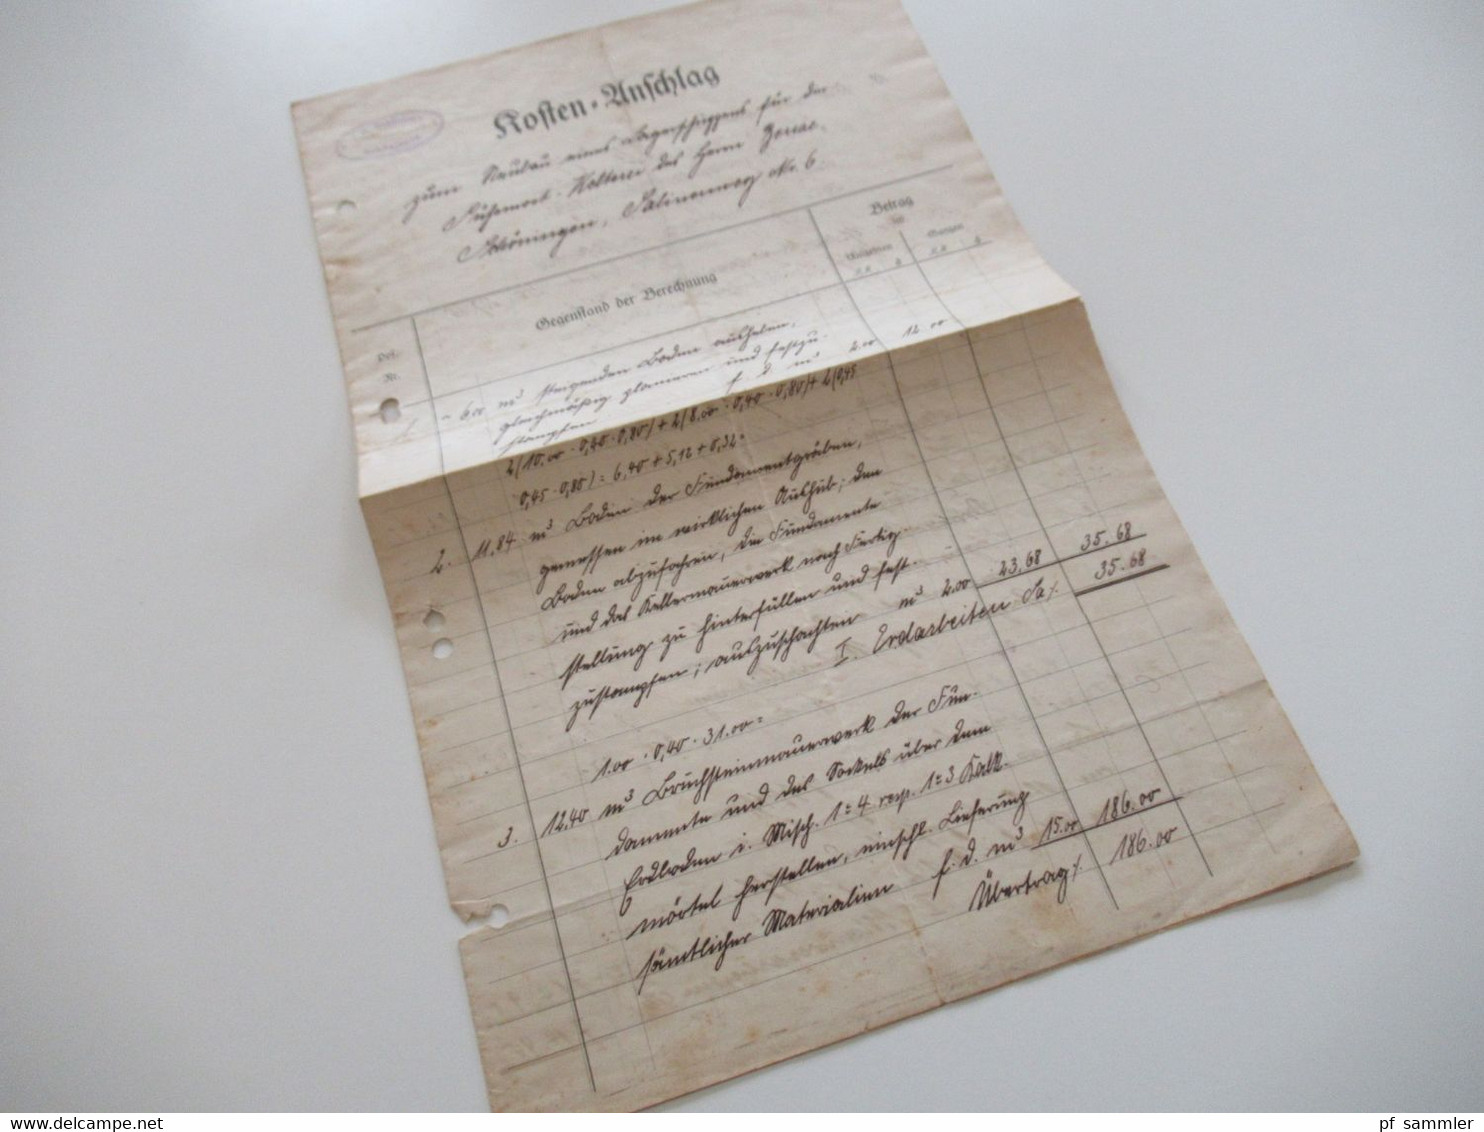 Kosten-Anschlag
zum Neubau eines Lagerschuppens für die
Süssmost-Kelterei des Herrn
Schöningen, Salinenweg No. 6.
Pos. Nr.
Gegenstand der Berechnung
Betrag
im
Einzelnen
Ganzen
1. ~ 6.00 m³ steigenden Boden ausheben,
gleichmäßig planieren und festzu-
stampfen f. d. m³ 2.00 12.00
2(10.00 · 0,40 · 0,80) + 2(8.00 · 0,40 · 0,80) + 2(0,45
0,45 · 0,85) = 6,40 + 5,12 + 0,32 =
2. 11.84 m³ Boden der Fundamentgräben,
gemessen im wirklichen Aushub; den
Boden abzufahren, die Fundamente
und das Kellermauerwerk nach Fertig-
stellung zu hinterfüllen und fest-
zustampfen; auszuschachten m³ 2.00 23.68 35.68
I. Erdarbeiten Sa/. 35.68
1.00 · 0,40 · 31.00 =
3. 12.40 m³ Bruchsteinmauerwerk der Fun-
damente und des Sockels über dem
Erdboden i. Misch. 1:4 resp. 1:3 Kalk-
mörtel herstellen, einschl. Lieferung
sämtlicher Materialien f. d. m³ 15.00 186.00
Übertrag/. 186.00
www.delcampe.net
pf_sammler